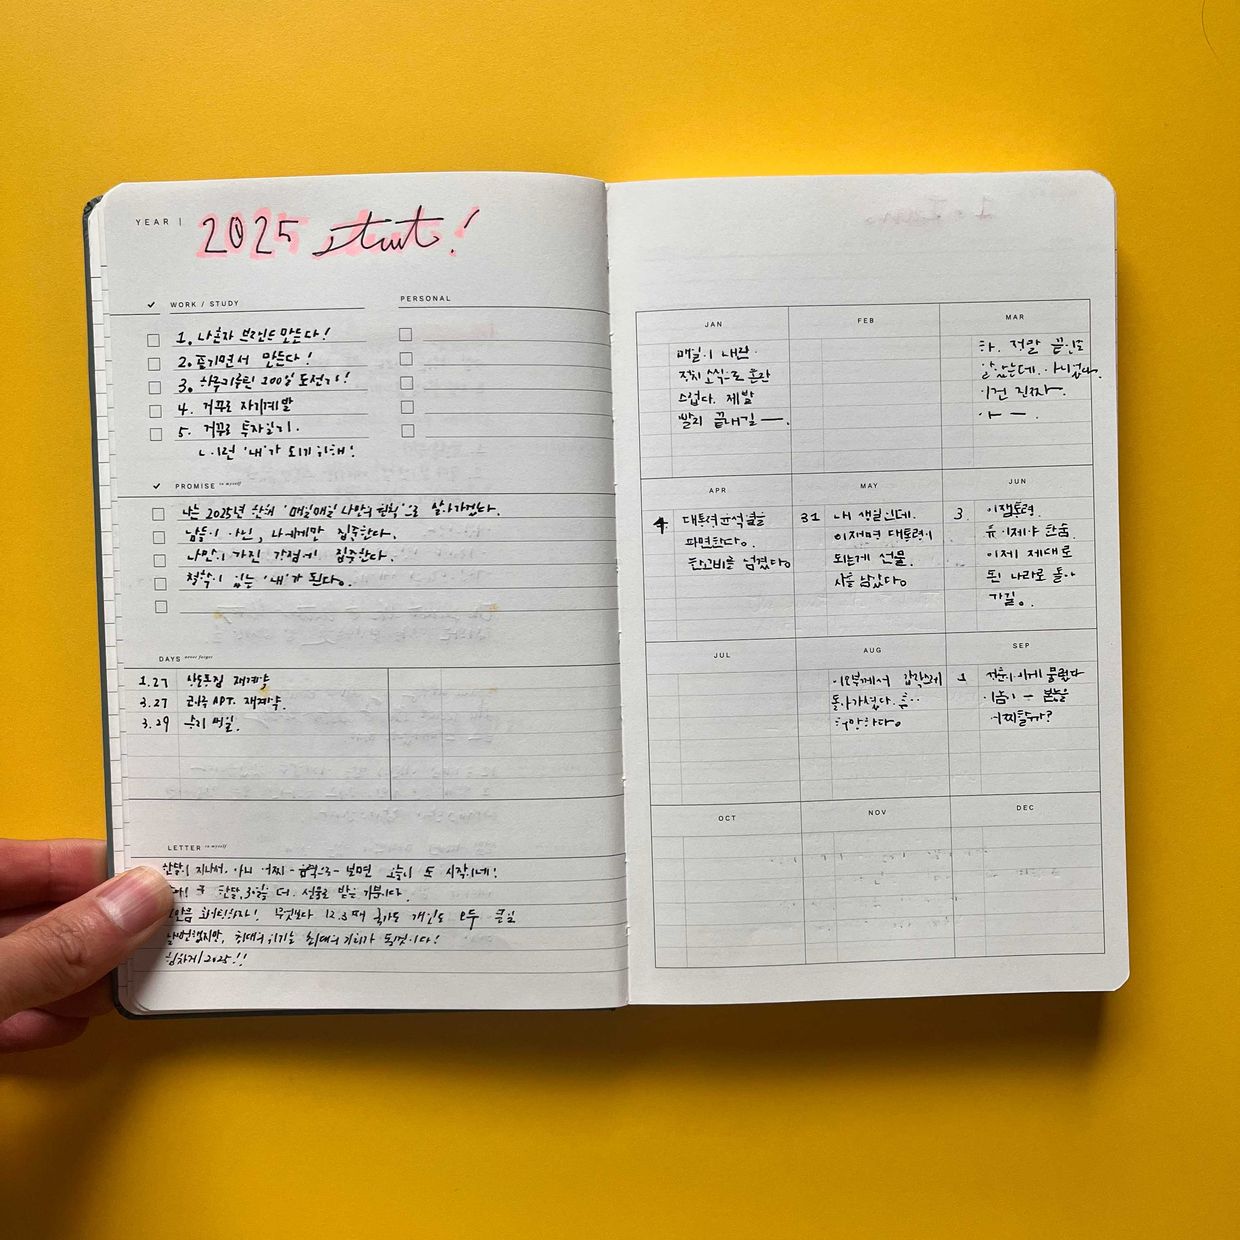 YEAR |
2025 start!
WORK / STUDY
PERSONAL
1. 나혼자 브랜드 만든다!
2. 즐기면서 만든다!
3. 하루키루틴 100일 도전기!
4. 거꾸로 자기계발
5. 거꾸로 투자일기.
이런 '내'가 되기 위해!
PROMISE to myself
나는 2025년 한해 '매일매일 나만의 원칙'으로 살아가겠다.
남들이 아닌, 나에게만 집중한다.
나만이 가진 강점에 집중한다.
철학이 있는 '내'가 된다.
DAYS never forget
1.27 재계약
3.27 APT. 재계약.
3.29 승리 생일.
LETTER to myself
한달이 지나서. 아니 어찌 - 음력으로 - 보면 오늘이 또 시작이네!
한달, 30일을 더. 선물로 받는 기분이다.
화이팅하자! 무엇보다 12.3 때 국가도 개인도 모두 큰일
날뻔했지만, 최대의 위기는 최대의 기회가 될것이다!
힘차게 2025!!
JAN
매일이 내란.
정치 소식으로 혼란
스럽다. 제발
빨리 끝내길 —.
FEB
MAR
하. 정말 끝인줄
알았는데. 아니었다.
이건 진짜.
아 —.
APR
4. 대통령 윤석열을
파면한다.
한고비를 넘겼다
MAY
31 내 생일인데.
이재명 대통령이
되는게 선물.
사흘 남았다.
JUN
3. 이잼통령.
휴 이제야 한숨.
이제 제대로
된 나라로 돌아
가길.
JUL
AUG
이모부께서 갑작스레
돌아가셨다. 휴..
허망하다.
SEP
1 석윤이에게 물렸다
이놈이 — 본능을
어찌할까?
OCT
NOV
DEC